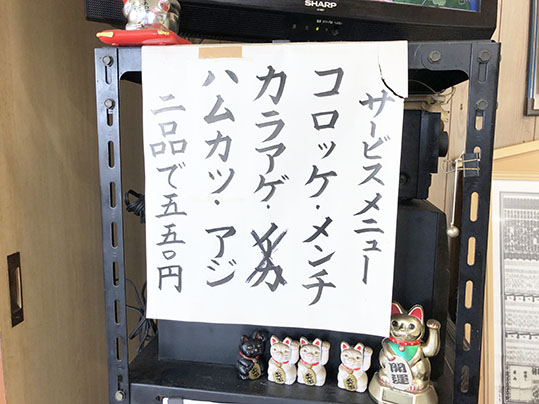 SHARP
サービスメニュー
コロッケ・メンチ
カラアゲ・イカ
ハムカツ・アジ
二品で五五〇円
開運